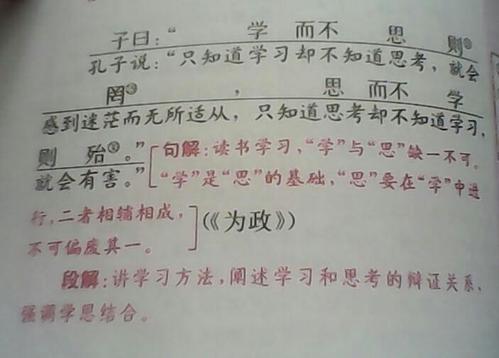 子曰:“ 学 而不 思 则②
孔子说:“只知道学习却不知道思考,就会
罔③ , 思 而不 学
感到迷茫而无所适从,只知道思考却不知道学习,
则 殆⑤。” [句解:读书学习,“学”与“思”缺一不可。
就会有害。” “学”是“思”的基础,“思”要在“学”中进
行,二者相辅相成,
不可偏废其一。] (《为政》)
段解:讲学习方法,阐述学习和思考的辩证关系,
强调学思结合。